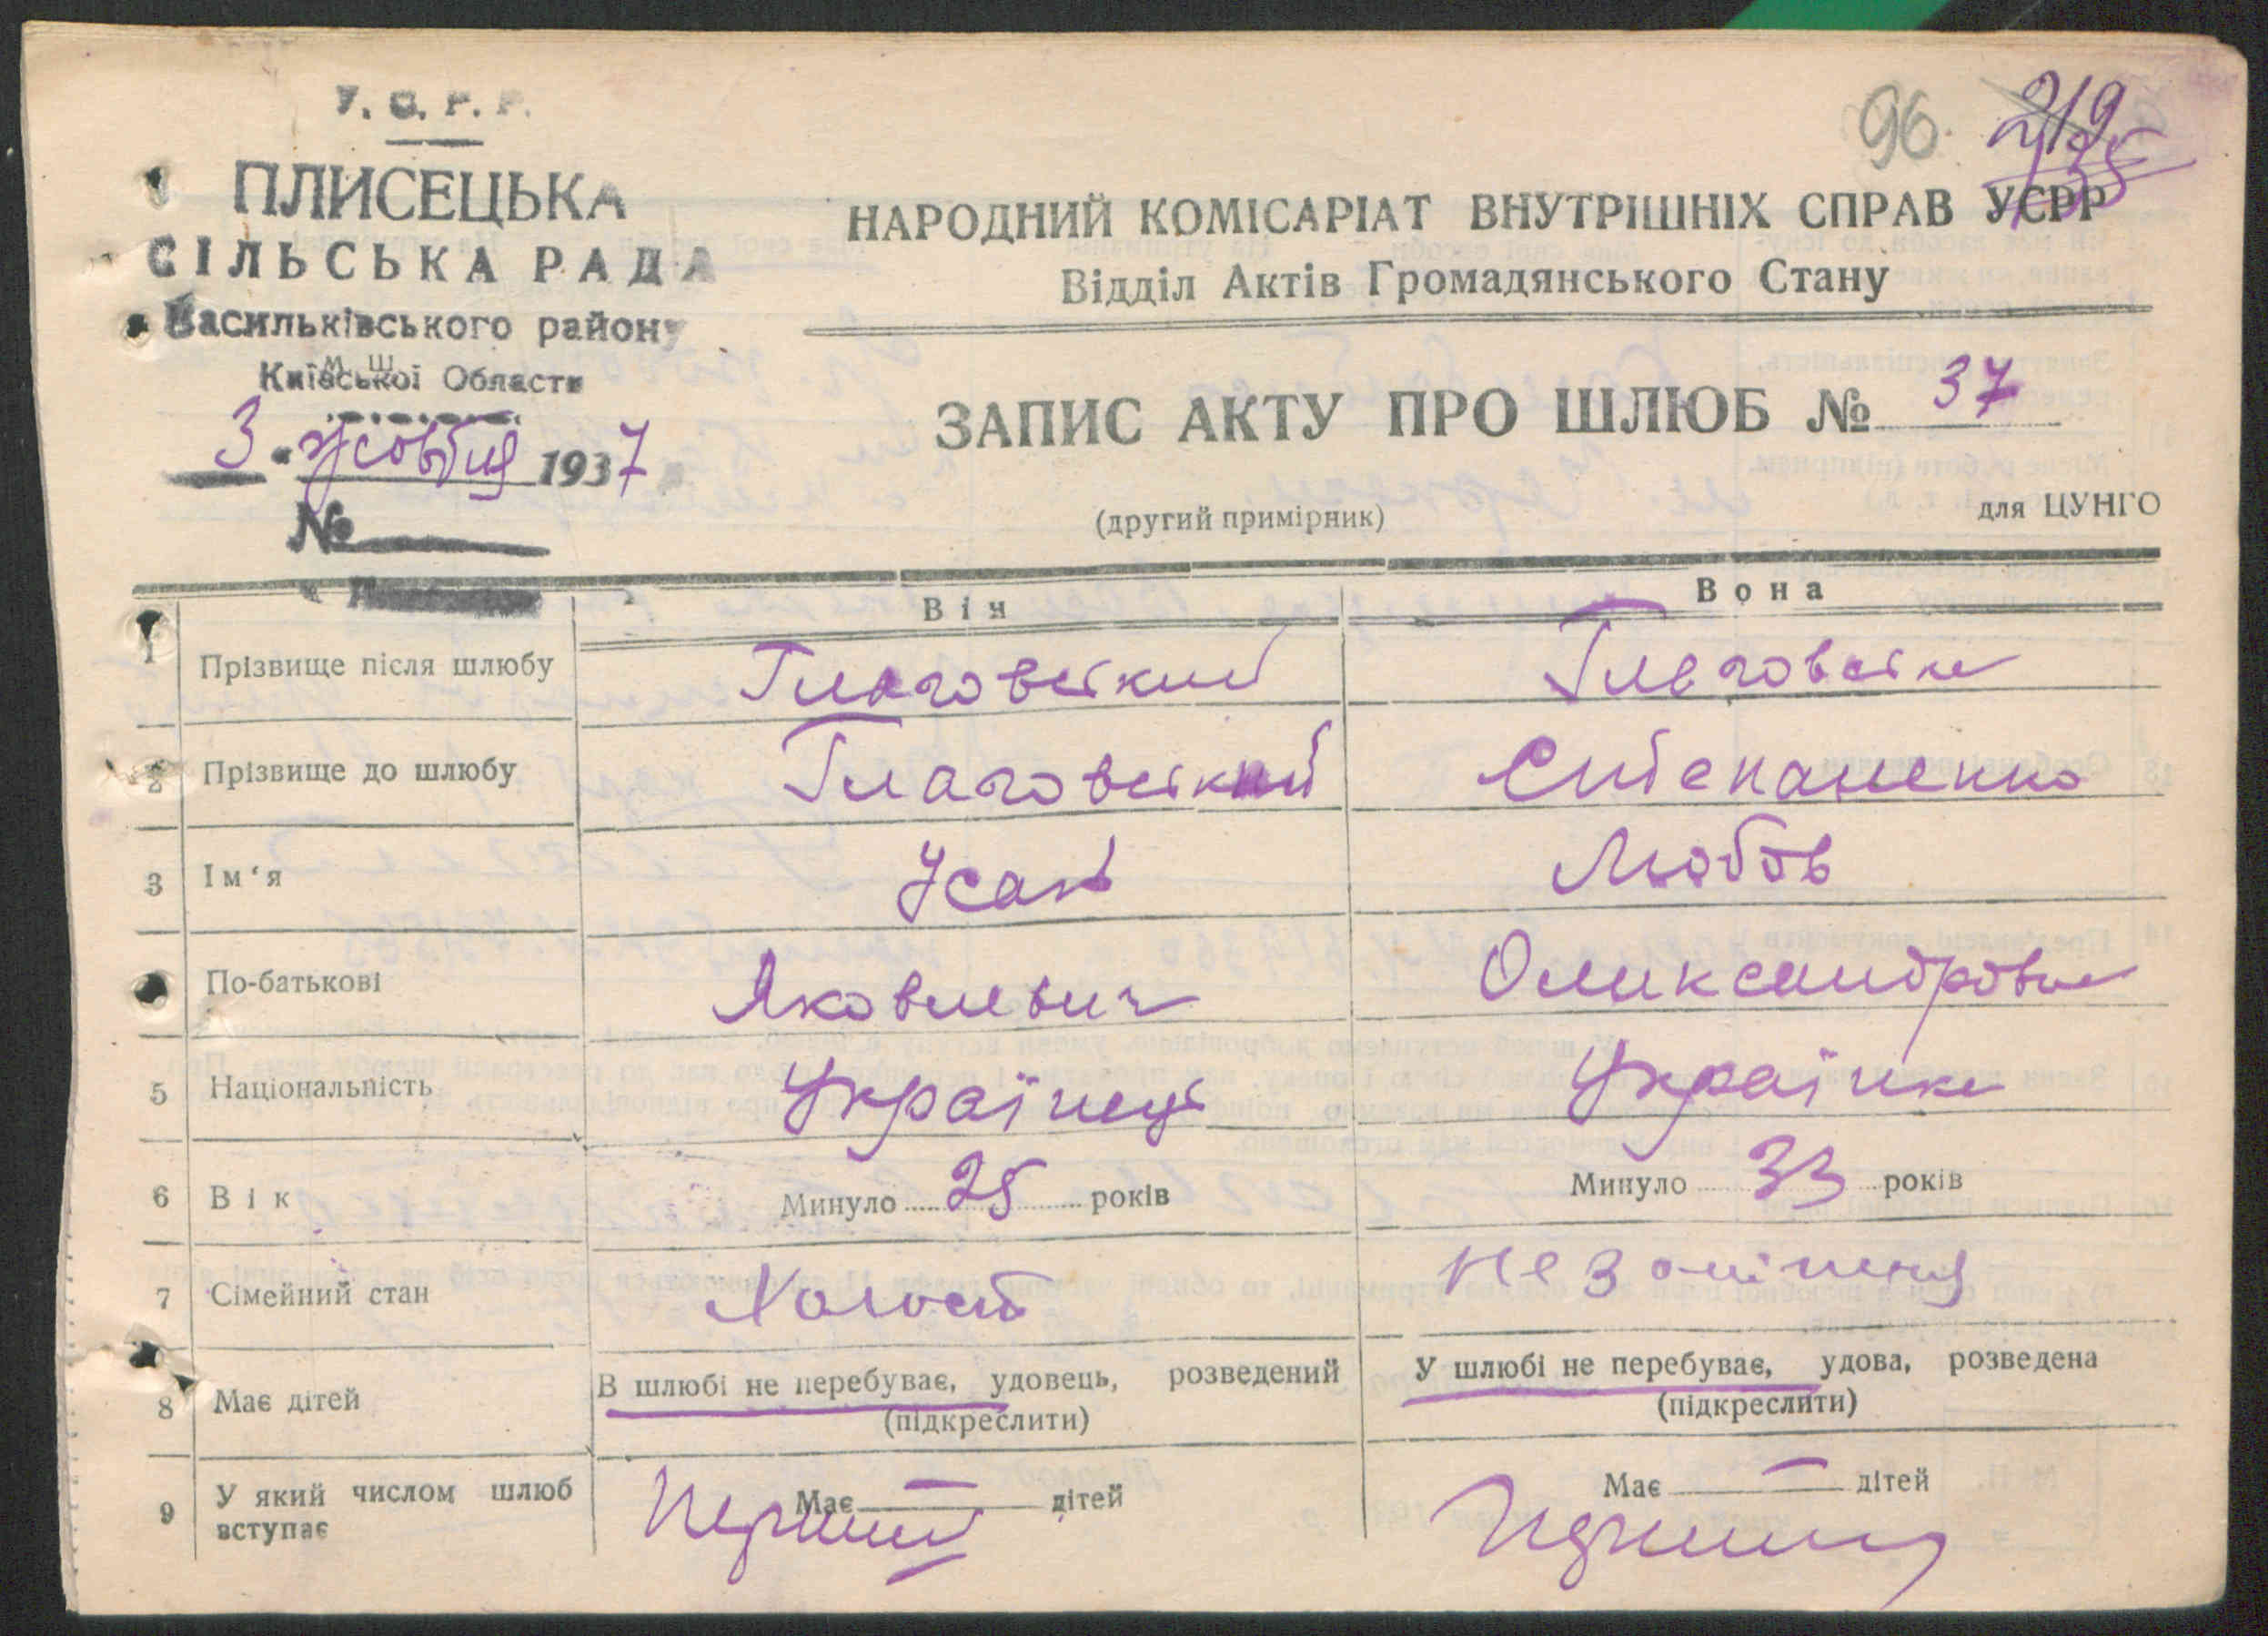 У. С. Р. Р.
ПЛИСЕЦЬКА
СІЛЬСЬКА РАДА
Васильківського району
Київської Области
м. Ш.
3 жовтня 1937
№
96. 219
135
НАРОДНИЙ КОМІСАРІАТ ВНУТРІШНІХ СПРАВ УСРР
Відділ Актів Громадянського Стану
ЗАПИС АКТУ ПРО ШЛЮБ № 37
(другий примірник)
для ЦУНГО
Він Вона
1 Прізвище після шлюбу Глаговский Глаговська
2 Прізвище до шлюбу Глаговский Степаненко
3 Ім‘я Усан Любов
По-батькові Яковлевич Олександровна
5 Національність Українец Українка
6 Вік Минуло 25 років Минуло 33 років
7 Сімейний стан Холост Не замiжня
8 Має дітей В шлюбі не перебуває, удовець, розведений У шлюбі не перебуває, удова, розведена
(підкреслити) (підкреслити)
9 У який числом шлюб вступає Має — дітей Має — дітей
Перший Перший